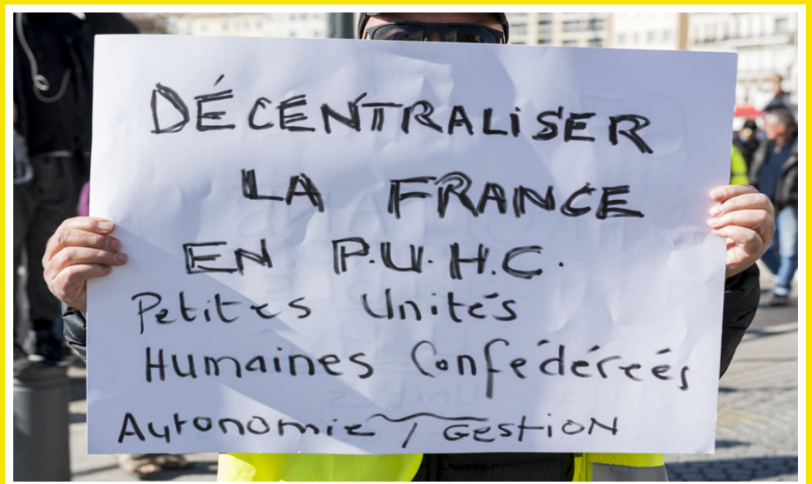 DÉCENTRALiSER
LA FRANCE
EN P.U.H.C.
Petites Unités
Humaines Confédéréés
Autonomie / GestioN